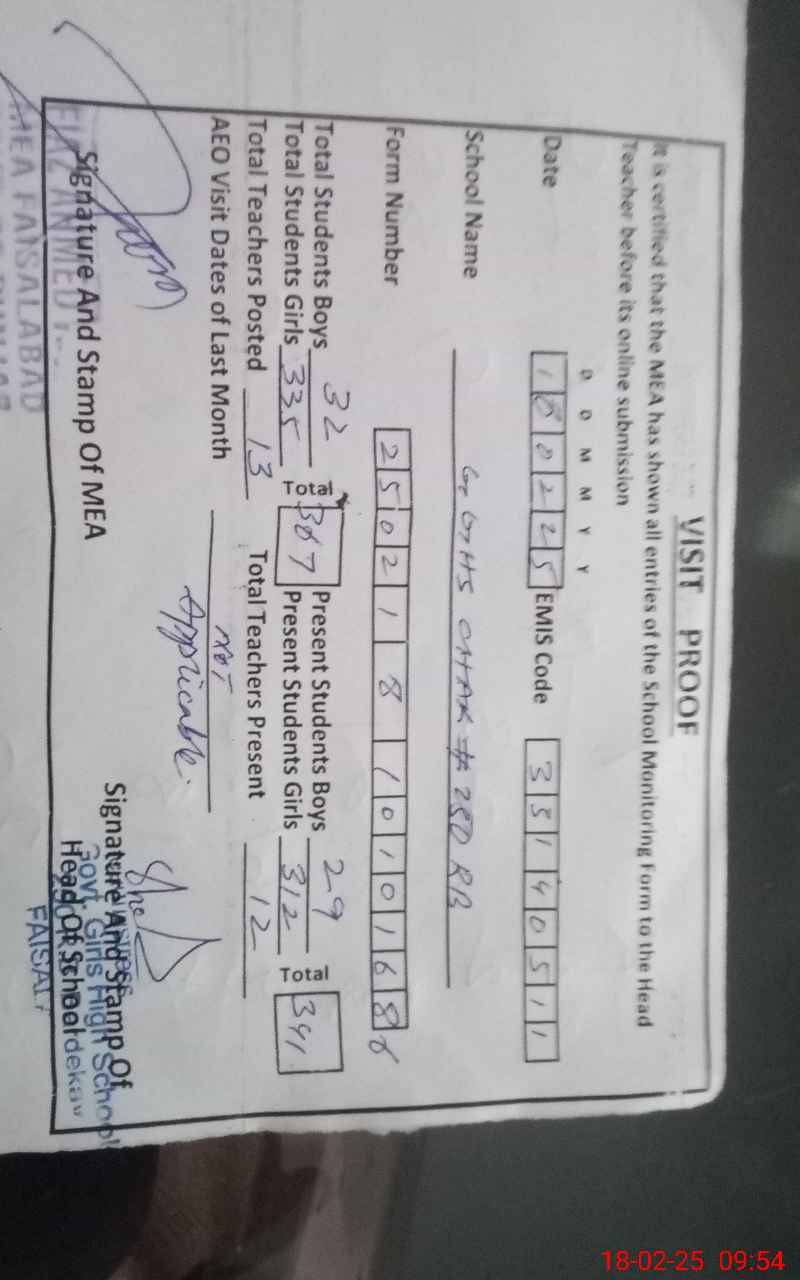 VISIT PROOF
It is certified that the MEA has shown all entries of the School Monitoring Form to the Head
Teacher before its online submission
D D M M Y Y
Date 180225 EMIS Code 33140511
School Name GGHS CHAK # 280 RB
Form Number 250218101016 8 8
Total Students Boys 32 Present Students Boys 29
Total Students Girls 335 Total 367 Present Students Girls 312 Total 341
Total Teachers Posted 13 Total Teachers Present 12
AEO Visit Dates of Last Month Not
Applicable.
Signature And Stamp Of MEA
MEA FAISALABAD
Signature And Stamp Of
Head Of School
Govt. Girls High School
FAISAL
18-02-25 09:54